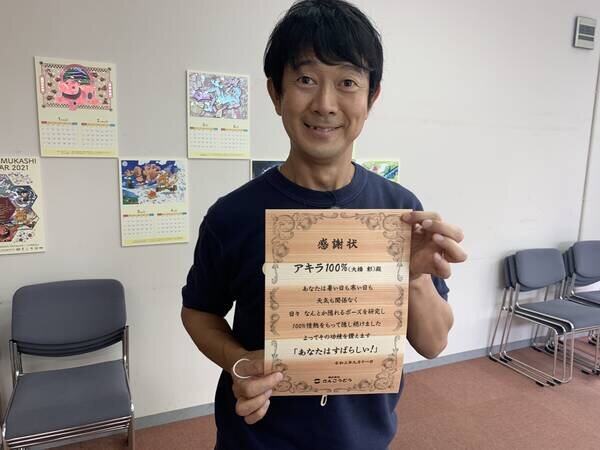 MUKASHI
AR 2021
感謝状
アキラ100%(大橋 彰)殿
あなたは暑い日も寒い日も
天気も関係なく
日々 なんとか隠れるポーズを研究し
100%情熱をもって隠し続けました
よってその功績を讃えます
「あなたはすばらしい!」
令和三年九月十一日
株式会社
さんこうどう